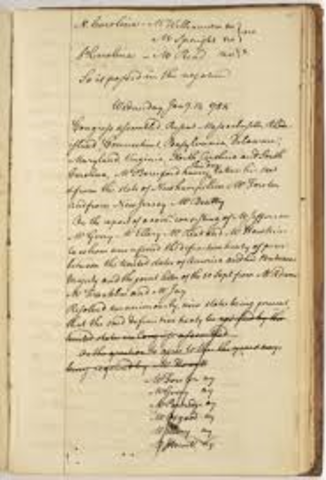 N. Carolina — Mr Williamson no
Mr Spaight no
S Carolina — Mr Read no
So it passed in the negative
Wednesday Jany. 14. 1784
Congress assembled, Present Massachusetts, Rhode
island, Connecticut, Pensylvania, Delaware,
Maryland, Virginia, North Carolina and South
Carolina, Mr Beresford having taken his seat
& from the state of Newhampshire Mr Foster
and from New Jersey Mr Beatty
On the report of a com: consisting of Mr Jefferson
Mr Gerry Mr Ellery Mr Read and Mr Hawkins
to whom was referred the definitive treaty of peace
between the United states of America and his Britannic
Majesty and the joint letter of the 10 Sept from Mr Adams
Mr Franklin and Mr Jay
Resolved unanimously, nine states being present
that the said definitive treaty be ratified by the
united states in Congress assembled
On the question to agree to this the yeas & nays
being required by
Mr Foster ay
Mr Gerry ay
Mr Partridge ay
Mr Osgood ay
Mr Ellery ay
Mr Howell ay